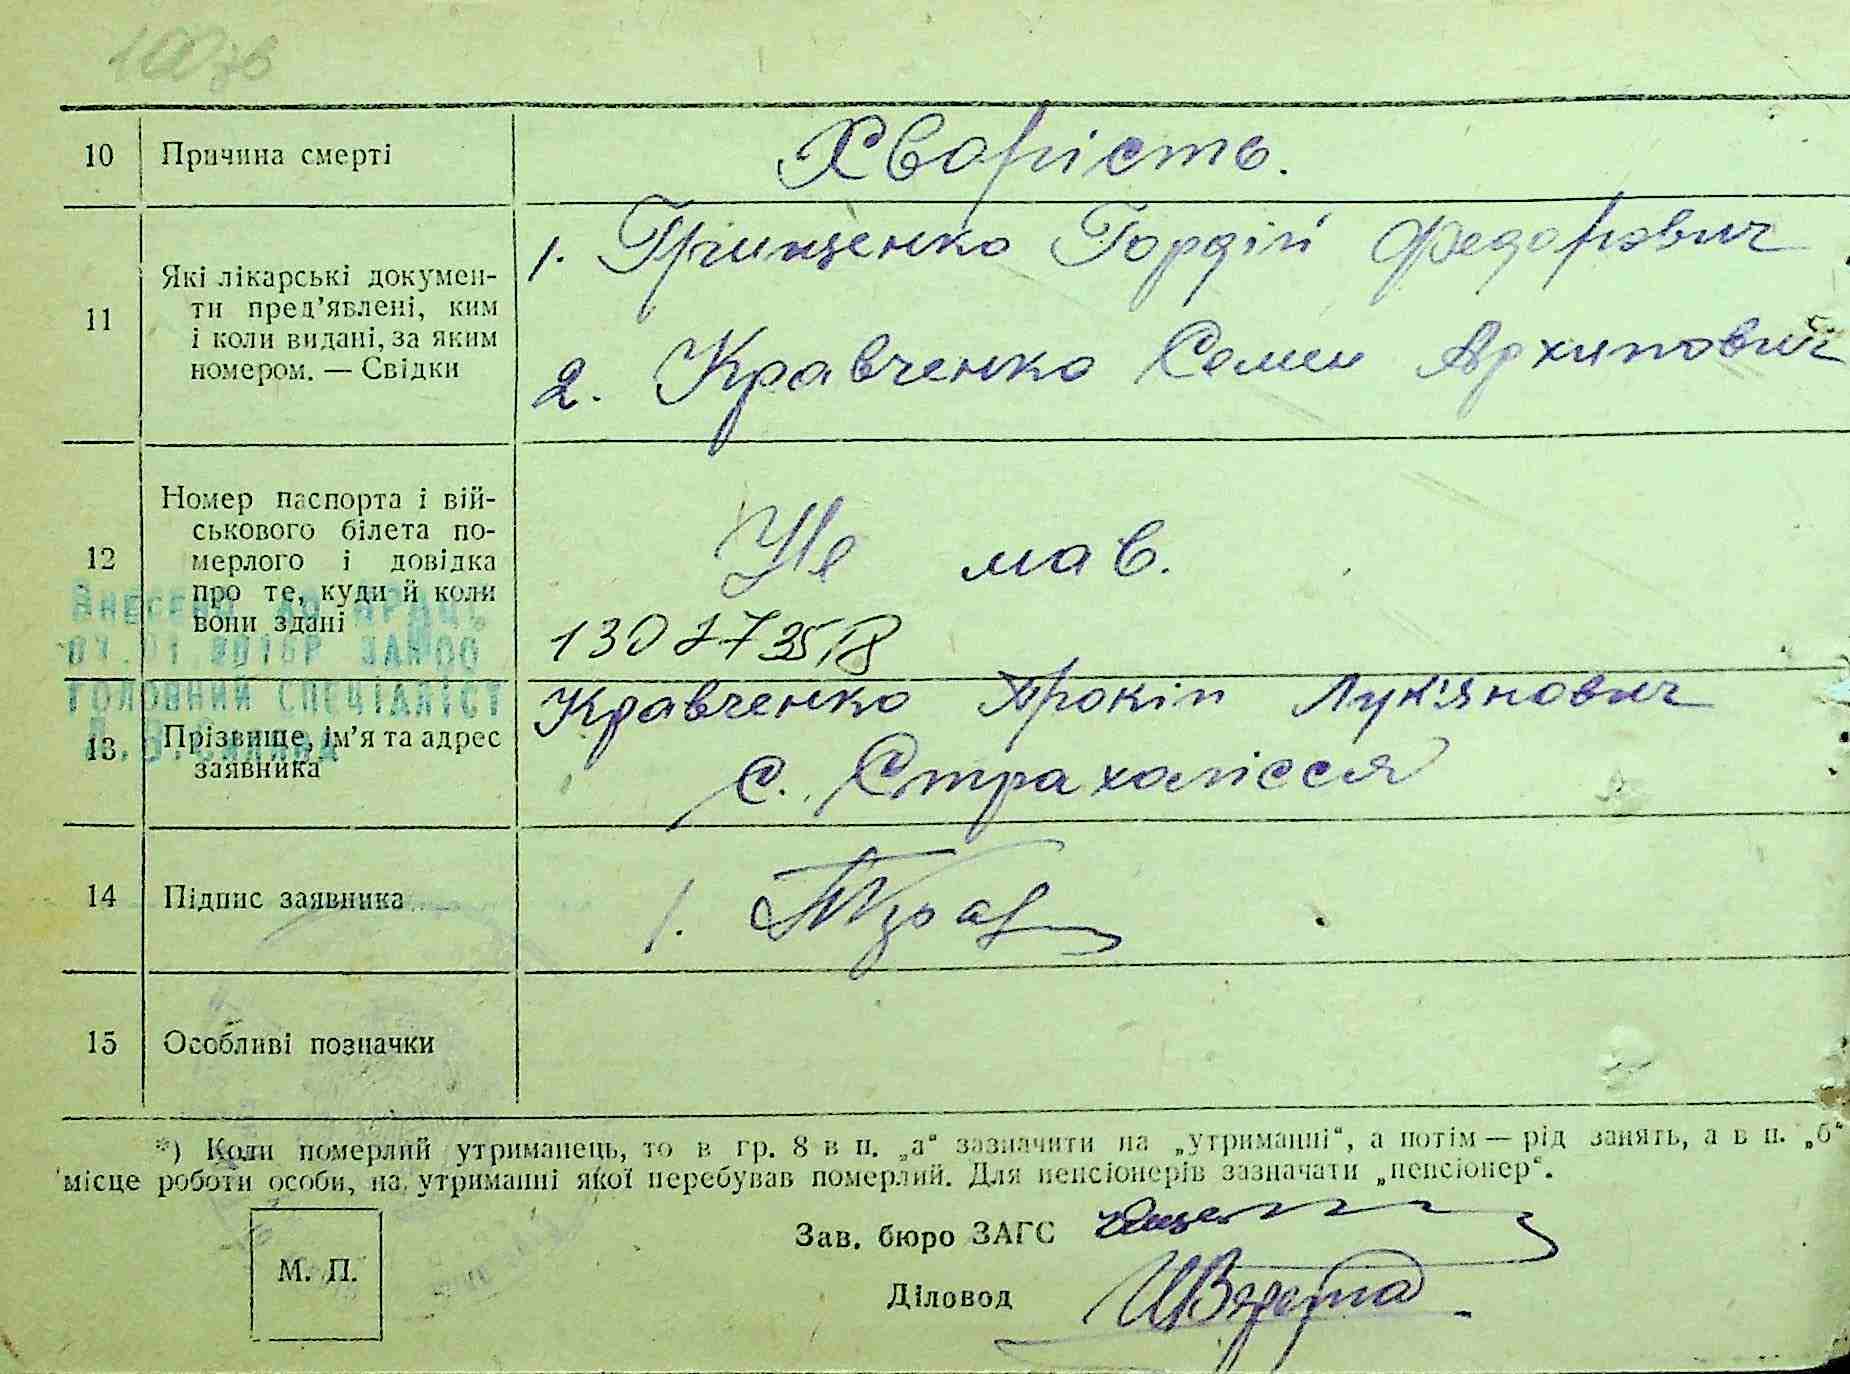 100зв
10 Причина смерті Хворість.
11 Які лікарські докумен-
ти пред'явлені, ким
і коли видані, за яким
номером. — Свідки
1. Грищенко Гордій Федорович
2. Кравченко Семен Архипович
12 Номер паспорта і вій-
ськового білета по-
мерлого і довідка
про те, куди й коли
вони здані
Не мав.
Внесено до ДРАЦС
ГОЛОВНИЙ СПЕЦІАЛІСТ
13. Прізвище, ім'я та адрес
заявника
Кравченко Прокіп Лук'янович
с. Страхолісся
14 Підпис заявника 1. ПКрав
15 Особливі позначки
*) Коли померлий утриманець, то в гр. 8 в п. „а“ зазначити на „утриманні“, а потім — рід занять, а в п. „б“
місце роботи особи, на утриманні якої перебував померлий. Для пенсіонерів зазначати „пенсіонер“.
Зав. бюро ЗАГС
М. П.
Діловод